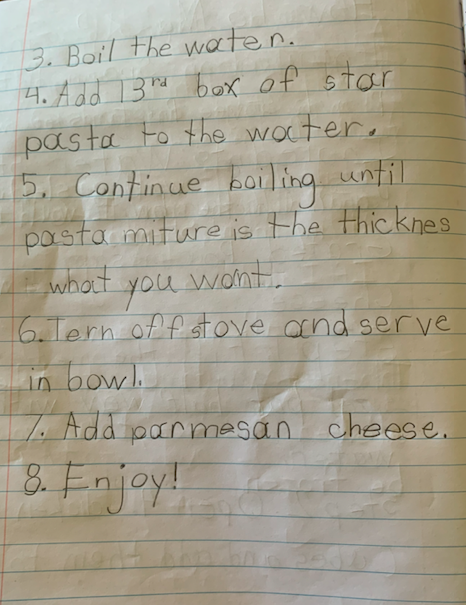 3. Boil the water.
4. Add 13rd box of star
pasta to the water.
5. Continue boiling until
pasta miture is the thicknes
what you want.
6. Tern off stove and serve
in bowl.
7. Add parmesan cheese.
8. Enjoy!